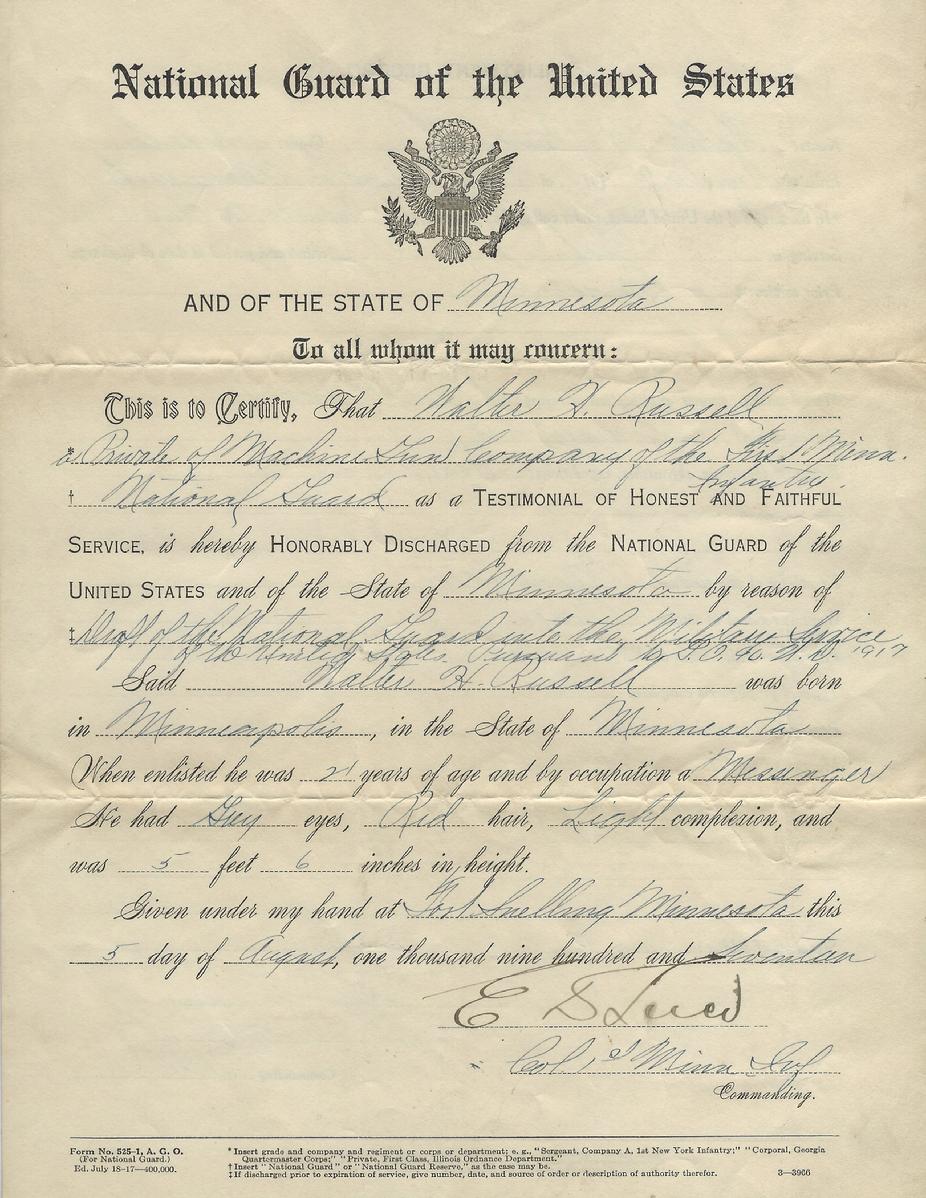 National Guard of the United States
AND OF THE STATE OF Minnesota
To all whom it may concern:
This is to Certify, That Walter H. Russell
* a Private of Machine Gun Company of the First Minn.
Infantry.
† National Guard as a TESTIMONIAL OF HONEST AND FAITHFUL
SERVICE, is hereby HONORABLY DISCHARGED from the NATIONAL GUARD of the
UNITED STATES and of the State of Minnesota by reason of
‡ Draft of the National Guard into the Military Service
of the United States. Pursuant to G.O. W.D. 1917
Said Walter H. Russell was born
in Minneapolis, in the State of Minnesota
When enlisted he was 21 years of age and by occupation a Messenger
He had Gray eyes, Red hair, Light complexion, and
was 5 feet 6 inches in height.
Given under my hand at Fort Snelling Minnesota this
5 day of August, one thousand nine hundred and Seventeen
E D Luce
Col 1st Minn Inf
Commanding.
Form No. 525-1, A. G. O.
(For National Guard.)
Ed. July 18-17—400,000.
* Insert grade and company and regiment or corps or department; e. g., "Sergeant, Company A, 1st New York Infantry;" "Corporal, Georgia
Quartermaster Corps;" "Private, First Class, Illinois Ordnance Department."
† Insert "National Guard" or "National Guard Reserve," as the case may be.
‡ If discharged prior to expiration of service, give number, date, and source of order or description of authority therefor.
3—3966